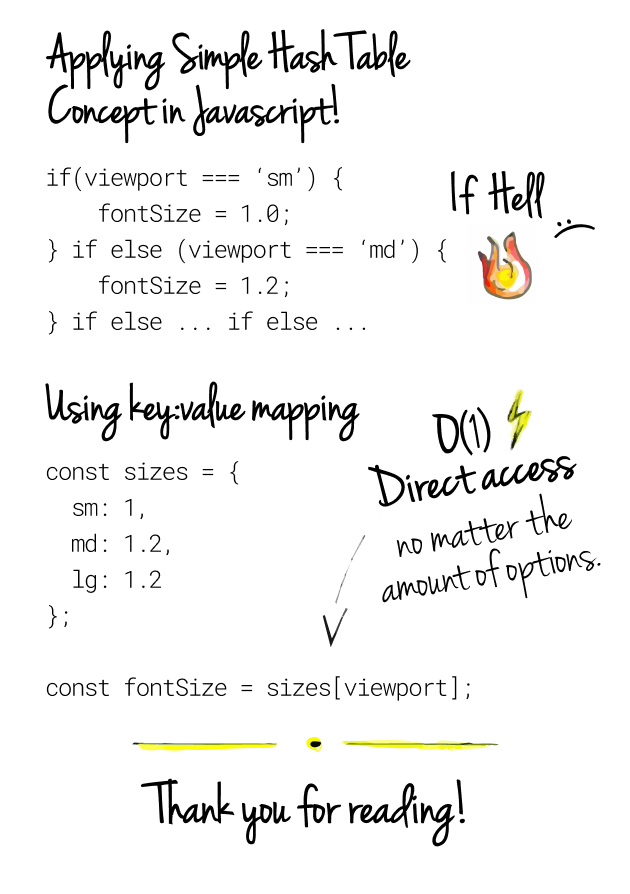 Applying Simple Hash Table
Concept in Javascript!
if(viewport === ‘sm’) {
    fontSize = 1.0;
} if else (viewport === ‘md’) {
    fontSize = 1.2;
} if else ... if else ...
If Hell
:(
Using key:value mapping
const sizes = {
  sm: 1,
  md: 1.2,
  lg: 1.2
};
O(1)
Direct access
no matter the
amount of options.
const fontSize = sizes[viewport];
Thank you for reading!